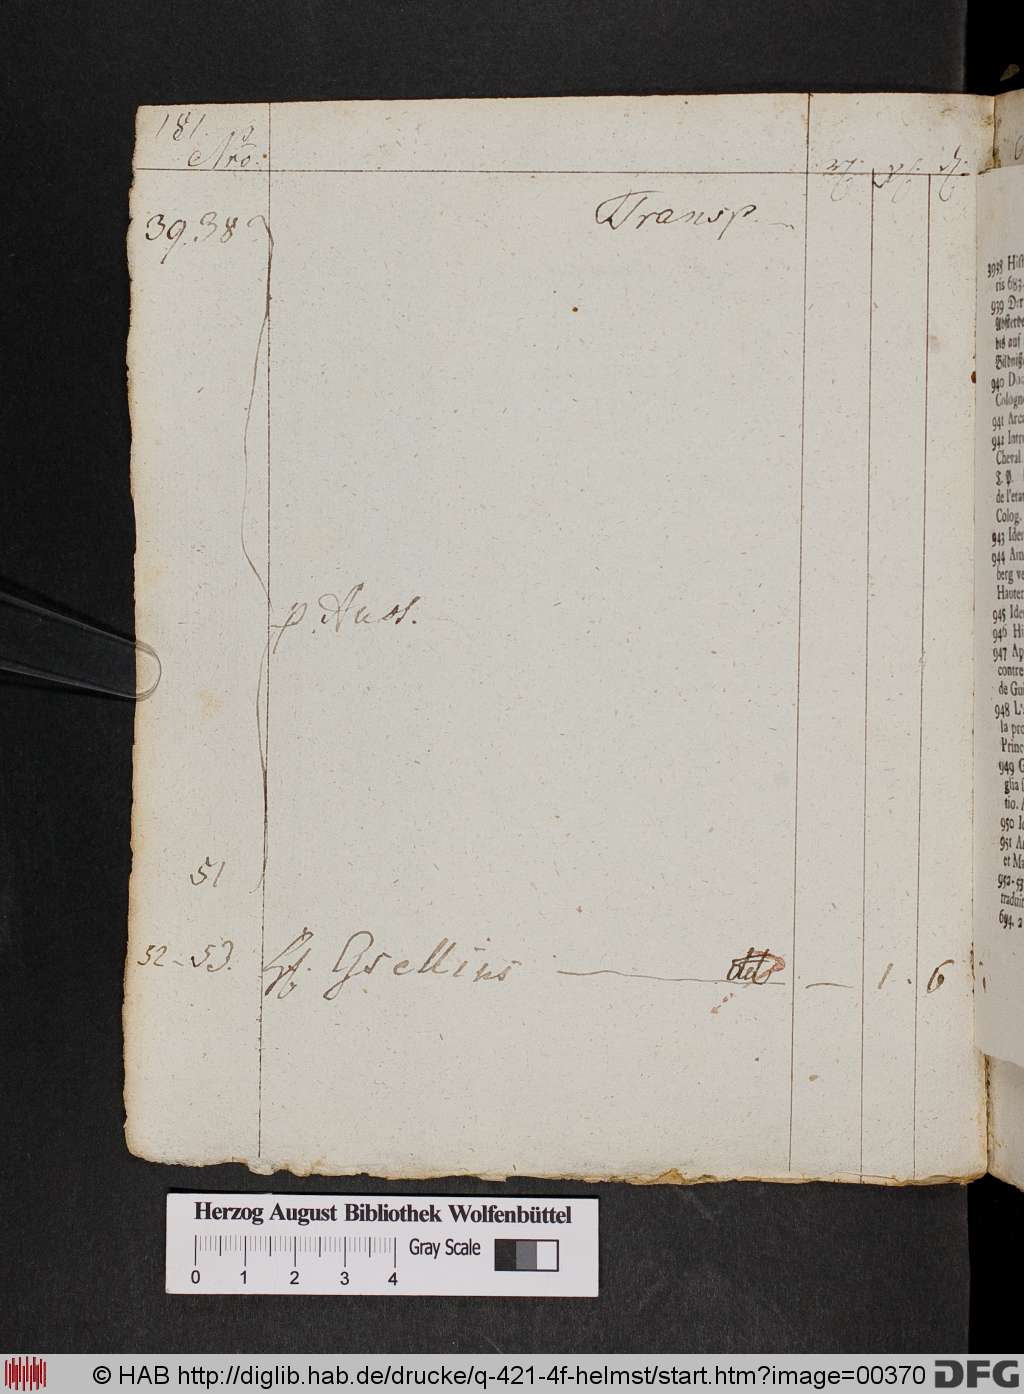 181.
Nro:
Transp.
39.38
p. Auss.
51
52-53. H. Gsellius — 1. 6
3938 Hist
ris 683.
939 Der
bis auf
940
Cologne
941 Arca
942 Intro
Cheval
de l'etat
Colog.
943 Idem
944
berg ve
Hauter
945 Ide
946 Hi
947 Ap
contre
de Gui
948 L'
la pro
Princ
949 G
glia
tio. A
950 I
951
et Ma
952-53
traduit
694. 2
Herzog August Bibliothek Wolfenbüttel
Gray Scale
0 1 2 3 4
© HAB http://diglib.hab.de/drucke/q-421-4f-helmst/start.htm?image=00370 DFG